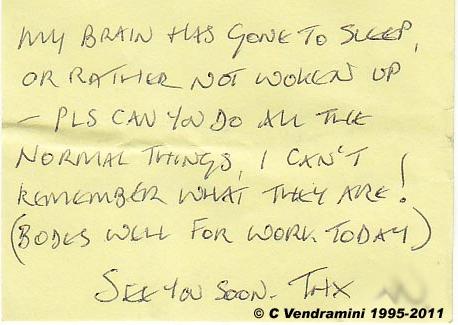 MY BRAIN HAS GONE TO SLEEP,
OR RATHER NOT WOKEN UP
– PLS CAN YOU DO ALL THE
NORMAL THINGS, I CAN'T
REMEMBER WHAT THEY ARE!
(BODES WELL FOR WORK TODAY)
SEE YOU SOON. THX
© C Vendramini 1995-2011